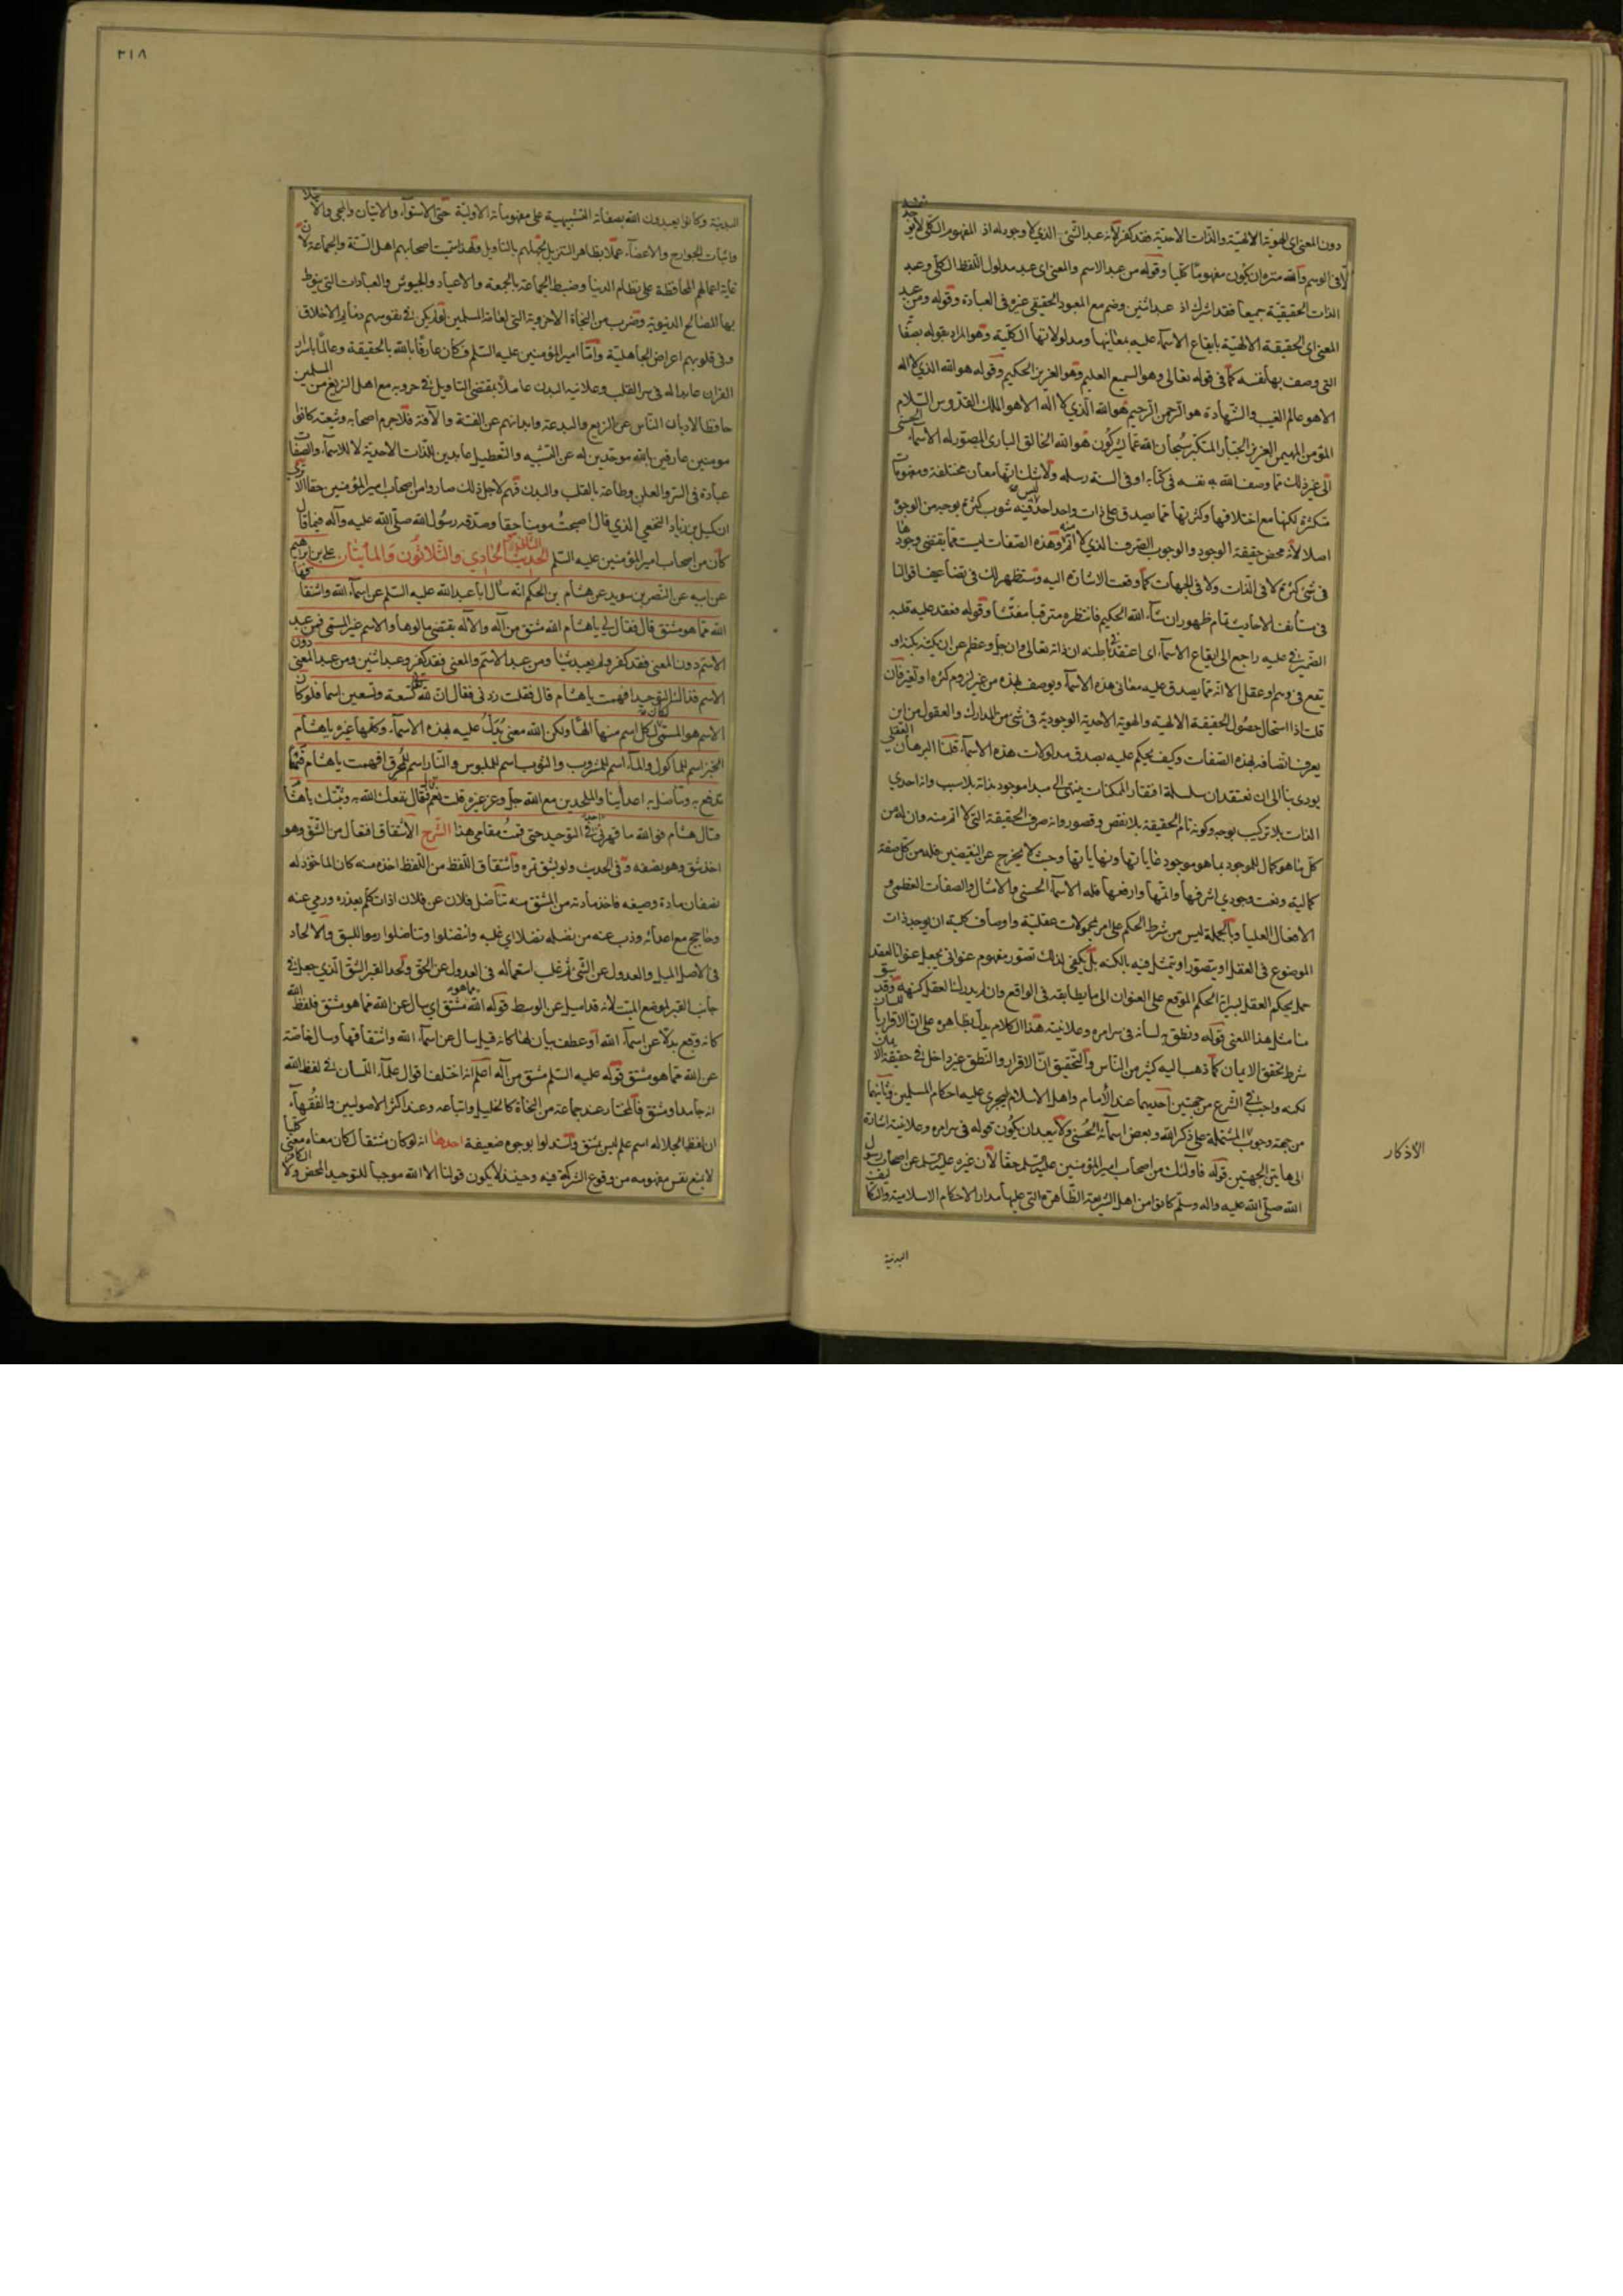 دون المعنى اى الهوية الالهية والذات الاحدية فقد كفر لانه عبد الشئ الذي لا وجود له اذ المفهوم الكلى لا يوجد
الا فى الوهم والله منزه ان يكون مفهوما كليا وقوله من عبد الاسم والمعنى اى عبد مدلول اللفظ الكلى وعبد
الذات الحقيقية جميعا فقد اشرك اذ عبد اثنين وضم مع المعبود الحقيقى غيره فى العبادة وقوله ومن عبد
المعنى اى الحقيقة الالهية بايقاع الاسماء عليه بمعانيها ومدلولاتها الكلية وهو المراد بقوله بصفاته
التى وصف بها نفسه كما فى قوله تعالى وهو السميع العليم وهو العزيز الحكيم وقوله هو الله الذي لا اله
الا هو عالم الغيب والشهادة هو الرحمن الرحيم هو الله الذي لا اله الا هو الملك القدوس السلام
المؤمن المهيمن العزيز الجبار المتكبر سبحان الله عما يشركون هو الله الخالق البارئ المصور له الاسماء الحسنى
الى غير ذلك مما وصف الله به نفسه فى كتابه او فى السنة رسله ولا شك انها معان مختلفة ومفهومات
متكثرة لكنها مع اختلافها وكثرتها مما يصدق على ذات واحد احد ليس فيه شوب كثرة بوجه من الوجوه
اصلا لانه محض حقيقة الوجود والوجوب الصرف الذي لا اتم منه وهذه الصفات ليست مما يقتضى وجودها
فى شئ كثرة لا فى الذات ولا فى الجهات كما وقعت الاشارة اليه وستظهر لك فى تضاعيف اقوالنا
فى مستأنف الاحاديث تمام ظهور ان شاء الله الحكيم فانتظره مترقبا مفتشا وقوله فعقد عليه قلبه
الضمير فى عليه راجع الى ايقاع الاسماء اى اعتقد فى باطنه ان ذاته تعالى وان جل وعظم عن ان يكتنه بكنه او
يقع فى وهم او عقل الا انه مما يصدق عليه معانى هذه الاسماء ويوصف بهذه من غير لزوم كثرة او تغير فان
قلت اذا استحال حصول الحقيقة الالهية والهوية الاحدية الوجودية فى شئ من المدارك والعقول من اين
يعرف اتصافه بهذه الصفات وكيف يحكم عليه بصدق مدلولات هذه الاسماء قلنا البرهان العقلى
يودى بنا الى ان نعتقد ان سلسلة افتقار الممكنات ينتهى الى مبدا موجود بذاته بلا سبب وانه احدي
الذات بلا تركيب بوجه وكونه تام الحقيقة بلا نقص وقصور وانه صرف الحقيقة التى لا اتم منه وان له من
كل ما هو كمال للموجود بما هو موجود غاياتها ونهاياتها وحيث لا يخرج عن النقيضين فله من كل صفة
كمالية ونعت وجودي اشرفها واتمها وارفعها فله الاسماء الحسنى والامثال والصفات العظمى و
الافعال العليا وبالجملة ليس من شرط الحكم على امر بمحمولات عقلية واوصاف كلية ان يوجد ذات
الموضوع فى العقل او يتصور او يتمثل فيه بالكنه بل يكفى لذلك تصور مفهوم عنوانى يجعل عنوانا لعقد
حمل يحكم العقل بسراية الحكم الموقع على العنوان الى ما يطابقه فى الواقع وان لم يدرك العقل كنهه وقد سبق
منا مثل هذا المعنى قوله ونطق به لسانه فى سرائره وعلانيته هذا الكلام يدل بظاهره على ان الاقرار باللسان
شرط تحقق الايمان كما ذهب اليه كثير من الناس والتحقيق ان الاقرار والنطق غير داخل فى حقيقة الايمان
لكنه واجب فى الشرع من جهتين احديهما عند الأمام واهل الاسلام ليجرى عليه احكام المسلمين وثانيهما
من جهة وجوب المشتملة على ذكر الله وبعض اسمائه الحسنى ولا يبعد ان يكون قوله فى سرائره وعلانيته اشارة
الى هاتين الجهتين قوله فاولئك من اصحاب امير المؤمنين عليه السلم حقا لان غيره عليه السلم من اصحاب رسول
الله صلى الله عليه واله وسلم كانوا من اهل الشريعة الظاهرة التى عليها مدار الاحكام الاسلامية والتكاليف
الأذكار
البدنية
٣١٨
البدنية وكانوا يعبدون الله بصفاته التشبيهية على مفهوماته الاولية حتى الاستواء والاتيان والمجئ والا
واثبات الجوارح والاعضاء عملا بظاهر التنزيل لجهلهم بالتاويل ولهذا سميت اصحابهم اهل السنة والجماعة لان
غاية اعمالهم المحافظة على نظام الدنيا وضبط الجماعة بالجمعة والاعياد والجيوش والعبادات التى ينوط
بها المصالح الدنيوية وضرب من النجاة الاخروية التى لعامة المسلمين لم يكن فى نفوسهم ذمايم الاخلاق
وفى قلوبهم اعراض الجاهلية واما امير المؤمنين عليه السلم فكان عارفا بالله بالحقيقة وعالما باسرار
القران عابدا له فى سر القلب وعلانية البدن عاملا بمقتضى التاويل فى حروبه مع اهل الزيغ من المسلمين
حافظا لاديان الناس عن الزيغ والبدعة وابدانهم عن الفتنة والآفة فلا جرم اصحابه وشيعته كانوا
مومنين عارفين بالله موحدين له عن التشبيه والتعطيل عابدين للذات الاحدية لا للاسماء والصفات
عبادة فى السر والعلن وطاعة بالقلب والبدن فهم لاجل ذلك صاروا من اصحاب امير المؤمنين حقا الا ترى
ان كميل بن زياد النخعي الذي قال اصبحت مومنا حقا وصدقه رسول الله صلى الله عليه وآله فيما قال
كان من اصحاب امير المؤمنين عليه السلم الحديث الثانى وهو الحادي والثلاثون والمأيتان علي بن ابراهيم
عن ابيه عن النضر بن سويد عن هشام بن الحكم انه سال ابا عبد الله عليه السلم عن اسماء الله واشتقاقها
الله مما هو مشتق قال فقال لي يا هشام الله مشتق من آله والاله يقتضى مالوها والاسم غير المسمى فمن عبد
الاسم دون المعنى فقد كفر ولم يعبد شيئا ومن عبد الاسم والمعنى فقد كفر وعبد اثنين ومن عبد المعنى دون
الاسم فذاك التوحيد افهمت يا هشام قال فقلت زدنى فقال ان لله تسعة وتسعين اسما فلو كان
الاسم هو المسمى لكان كل اسم منها الها ولكن الله معنى يدل عليه بهذه الاسماء وكلها غيره يا هشام
الخبز اسم للماكول والماء اسم للمشروب والثوب اسم للملبوس والنار اسم للمحرق افهمت يا هشام فهما
تدفع به وتناضل به اعداءنا والملحدين مع الله جل وعز غيره قلت نعم قال فقال نفعك الله به وثبتك يا هشام
قال هشام فوالله ما قهرنى احد فى التوحيد حتى قمت مقامي هذا الشرح الاشتقاق افتعال من الشق وهو
اخذ شق وهو نصفه وفى الحديث ولو بشق تمرة واشتقاق اللفظ من اللفظ اخذه منه كان الماخوذ له
نصفان مادة وصيغة فاخذ مادته من المشتق منه تناضل فلان عن فلان اذا تكلم بعذره ورمى عنه
وحاجج مع اعدائه وذب عنه من نضله نضلا اي غلبه وانتضلوا وتناضلوا رموا للسبق والالحاد
فى الاصل الميل والعدول عن الشئ ثم غلب استعماله فى العدول عن الحق ولحد القبر الشق الذي جعل فى
جانب القبر لموضع الميت لانه قد اميل عن الوسط قوله الله مما هو مشتق اي سال عن الله مما هو مشتق فلفظ الله
كانه وقع بدلا عن اسماء الله او عطف بيان لها كانه قيل سال عن اسماء الله واشتقاقها وسال خاصة
عن الله مما هو مشتق قوله عليه السلم مشتق من آله اعلم انه اختلف اقوال علماء اللسان فى لفظ الله
انه جامد او مشتق فالمختار عند جماعة من النحاة كالخليل واتباعه وعند اكثر الاصوليين والفقهاء
ان لفظ الجلالة اسم علم ليس بمشتق واستدلوا بوجوه ضعيفة احدها انه لو كان مشتقا لكان معناه معنى كليا
لا يمنع نفس مفهومه من وقوع الشركة فيه وحينئذ لا يكون قولنا لا اله الا الله موجبا للتوحيد المحض ولا الكافر